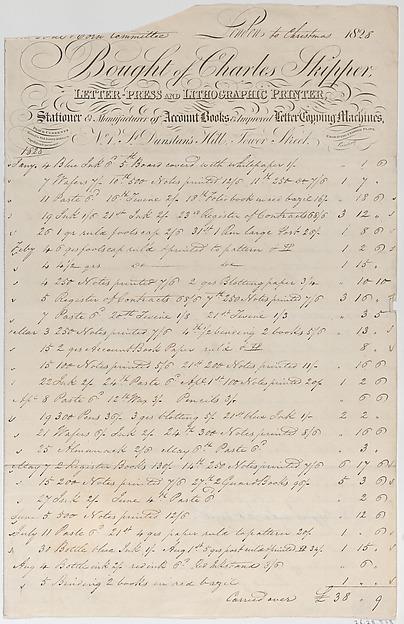 Corn Committee London to Christmas 1828
Bought of Charles Skipper,
LETTER-PRESS AND LITHOGRAPHIC PRINTER,
Stationer & Manufacturer of Account Books & Improved Letter Copying Machines,
St Dunstan's Hill, Tower Street.
1828
Jany 4 Blue Ink 6d 5th Board covered with white paper 1/- " 1 6
" 7 Wafers 7/- 10th 500 Notes printed 12/6 11th 250 do 7/6 1 7 "
" 11 Paste 6d 16th Twine 2/- 18th Note book in red bazil 16/- " 18 6
" 19 Ink 1/6 21st Ink 2/- 23rd Register of Contracts 68/6 3 12 "
" 26 1 qr ruld foolscap 2/6 31st 1 Rm large Post 26/- 1 8 6
Feby 4 6 qrs foolscap ruld & printed to pattern 1 2 6
" 4 4 1/2 qrs do do 1 15 "
" 4 250 Notes printed 7/6 2 qrs Blotting paper 3/4 " 10 10
" 5 Register of Contracts 68/6 7th 250 Notes printed 7/6 3 16 "
" 7 Paste 6d 20th Twine 1/8 21st Twine 1/3 " 3 5
Mar 3 250 Notes printed 7/6 4th 1/2 binding 2 books 5/6 " 13 "
" 15 2 qrs Account Book Paper ruld " 8 "
" 15 100 Notes printed 5/6 21st 200 Notes printed 11/- " 16 6
" 22 Ink 2/- 24th Paste 6d Apl 1st 100 Notes printed 20/- 1 2 6
Apl 8 Paste 6d 12th Wax 3/- Pencils 3/- " 6 6
" 19 300 Pens 36/- 3 qrs blotting 5/- 21st blue Ink 1/- 2 2 "
" 21 Wafers 6/- Ink 2/- 24th 300 Notes printed 8/6 " 16 6
" 25 Almanack 2/6 May 6th Paste 6d " 3 "
May 7 2 Register Books 130/- 14th 250 Notes printed 7/6 6 17 6
" 15 200 Notes printed 7/6 27th 2 Guard Books 96/- 5 3 6
" 27 Ink 2/- June 4th Paste 6d " 2 6
June 5 500 Notes printed 12/6 " 12 6
July 11 Paste 6d 21st 4 qrs paper ruld to pattern 20/- 1 " 6
" 30 Bottle blue Ink 1/- Augt 1st 5 qrs post ruld printed 34/- 1 15 "
Aug 4 Bottle ink 2/- red ink 6d Red Inkstand 3/6 " 6 "
" 5 Binding 2 books in red bazil 1 " "
Carried over £ 38 " 9